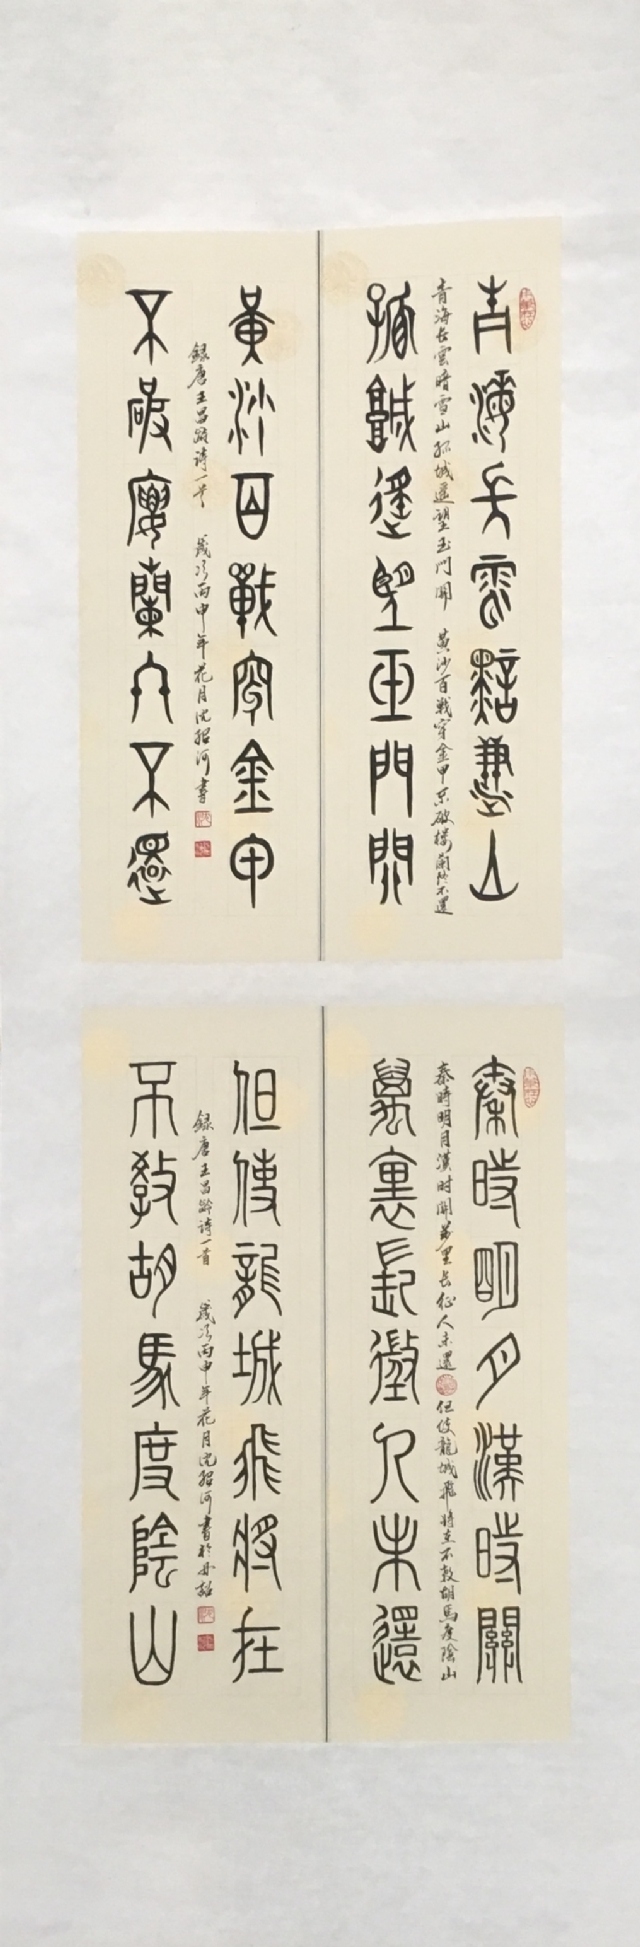 青海長雲黯雪山
青海长雲暗雪山孤城遥望玉門関 黄沙百戦穿金甲不破楼蘭终不還
孤城遥望玉門関
黄沙百戰穿金甲
録唐王昌龄诗一首 歲次丙申年花月沈河書
不破樓蘭終不還
秦時明月漢時關
秦時明月漢时関万里长征人未還 但使龍城飛将在不教胡馬度陰山
萬里長徵人未還
但使龍城飛將在
録唐王昌龄诗一首 歲次丙申年花月沈河書於
不教胡馬度陰山